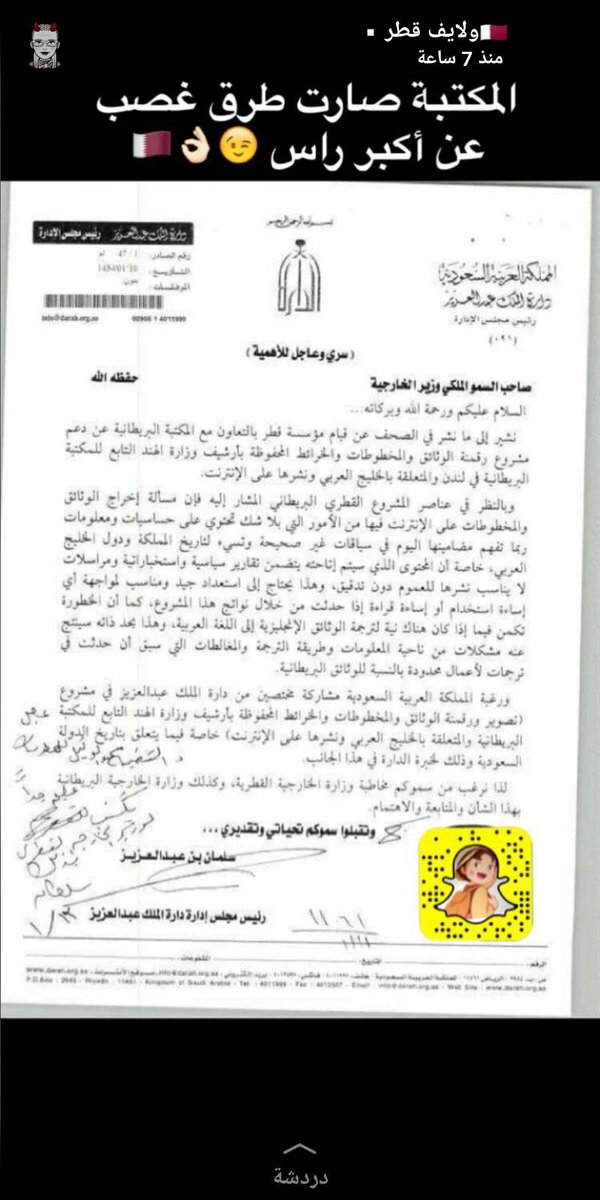 ولايف قطر
منذ 7 ساعة
المكتبة صارت طرق غصب
عن أكبر راس 😉👌🏻🇶🇦
بسم الله الرحمن الرحيم
المملكة العربية السعودية
دارة الملك عبدالعزيز
رئيس مجلس الإدارة
(٠٩٦)
دارة الملك عبدالعزيز رئيس مجلس الإدارة
رقم الصادر:
التاريخ:
المرفقات: بدون
info@darah.org.sa 00966 1 4011999
الدارة
( سري وعاجل للأهمية )
صاحب السمو الملكي وزير الخارجية حفظه الله
السلام عليكم ورحمة الله وبركاته...
نشير إلى ما نشر في الصحف عن قيام مؤسسة قطر بالتعاون مع المكتبة البريطانية عن دعم
مشروع رقمنة الوثائق والمخطوطات والخرائط المحفوظة بأرشيف وزارة الهند التابع للمكتبة
البريطانية في لندن والمتعلقة بالخليج العربي ونشرها على الإنترنت.
وبالنظر في عناصر المشروع القطري البريطاني المشار إليه فإن مسألة إخراج الوثائق
والمخطوطات على الإنترنت فيها من الأمور التي بلا شك تحتوي على حساسيات ومعلومات
ربما تفهم مضامينها اليوم في سياقات غير صحيحة وتسيء لتاريخ المملكة ودول الخليج
العربي، خاصة أن المحتوى الذي سيتم إتاحته يتضمن تقارير سياسية واستخباراتية ومراسلات
لا يناسب نشرها للعموم دون تدقيق، وهذا يحتاج إلى استعداد جيد ومناسب لمواجهة أي
إساءة استخدام أو إساءة قراءة إذا حدثت من خلال نواتج هذا المشروع، كما أن الخطورة
تكمن فيما إذا كان هناك نية لترجمة الوثائق الإنجليزية إلى اللغة العربية، وهذا بحد ذاته سينتج
عنه مشكلات من ناحية المعلومات وطريقة الترجمة والمغالطات التي سبق أن حدثت في
ترجمات لأعمال محدودة بالنسبة للوثائق البريطانية.
ورغبة المملكة العربية السعودية مشاركة مختصين من دارة الملك عبدالعزيز في مشروع
(تصوير ورقمنة الوثائق والمخطوطات والخرائط المحفوظة بأرشيف وزارة الهند التابع للمكتبة
البريطانية والمتعلقة بالخليج العربي ونشرها على الإنترنت) خاصة فيما يتعلق بتاريخ الدولة
السعودية وذلك لخبرة الدارة في هذا الجانب.
لذا نرغب من سموكم مخاطبة وزارة الخارجية القطرية، وكذلك وزارة الخارجية البريطانية
بهذا الشأن والمتابعة والاهتمام.
وتقبلوا سموكم تحياتي وتقديري...
سلمان بن عبدالعزيز
رئيس مجلس إدارة دارة الملك عبدالعزيز
الرقم: التاريخ: المشفوعات:
P.O.Box : 2945 - Riyadh : 11461 - Kingdom of Saudi Arabia - Tel : 4011999 - Fax : 4013597 - Email : info@darah.org.sa - Web Site : www.darah.org.sa
دردشة